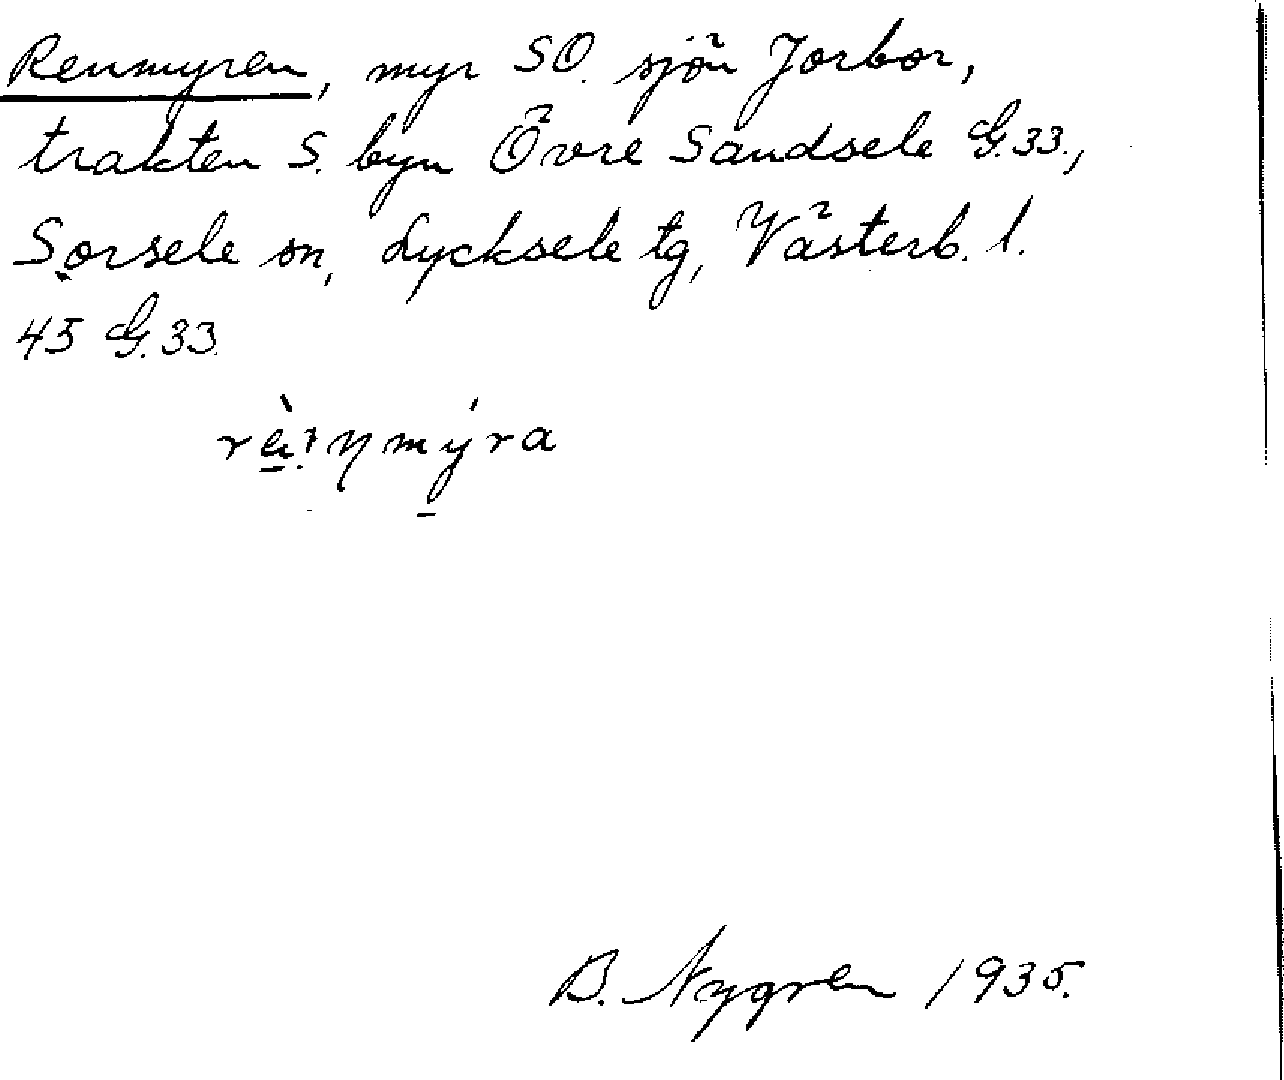 Renmyren, myr SO. sjön Jorbor,
trakten S. byn Övre Sandsele G.33.,
Sorsele sn, Lycksele tg, Västerb. l.
45 G.33.
B. Nygren 1935.